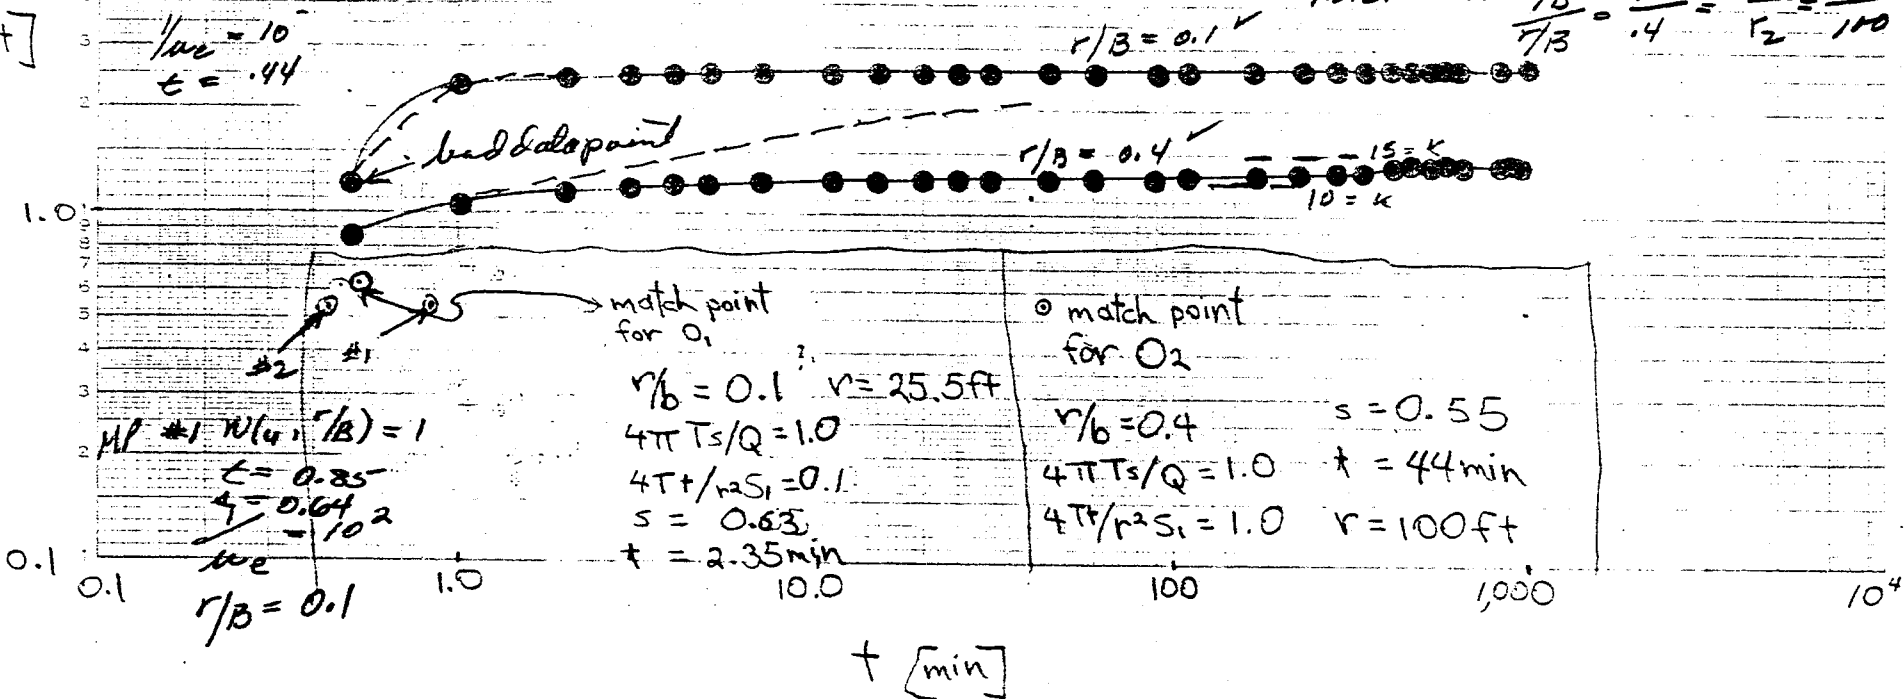 t]
1/ue = 10
t = .44
r/B = 0.1 ✓
r/B / r/B = /.4 = /r2 = /100
3
2
bad data point
r/B = 0.4 ✓
15 = K
10 = K
1.0
9
8
7
6
5
4
3
2
#2
#1
match point
for O1
?
r/b = 0.1 r = 25.5ft
4πTs/Q = 1.0
4Tt/r²S1 = 0.1
s = 0.63
t = 2.35min
⊙ match point
for O2
r/b = 0.4
s = 0.55
4πTs/Q = 1.0
t = 44min
4Tt/r²S1 = 1.0
r = 100ft
MP #1 W(u, r/B) = 1
t = 0.85
s = 0.64
1/ue = 10²
r/B = 0.1
0.1
0.1 1.0 10.0 100 1,000 10⁴
t [min]